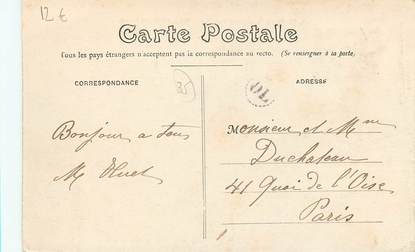 12 €
Carte Postale
Tous les pays étrangers n'acceptent pas la correspondance au recto. (Se renseigner à la poste)
CORRESPONDANCE
35
ADRESSE
Bonjour a tous
M Huet
Monsieur et Mme
Duchateau
41 Quai de l'Oise
Paris